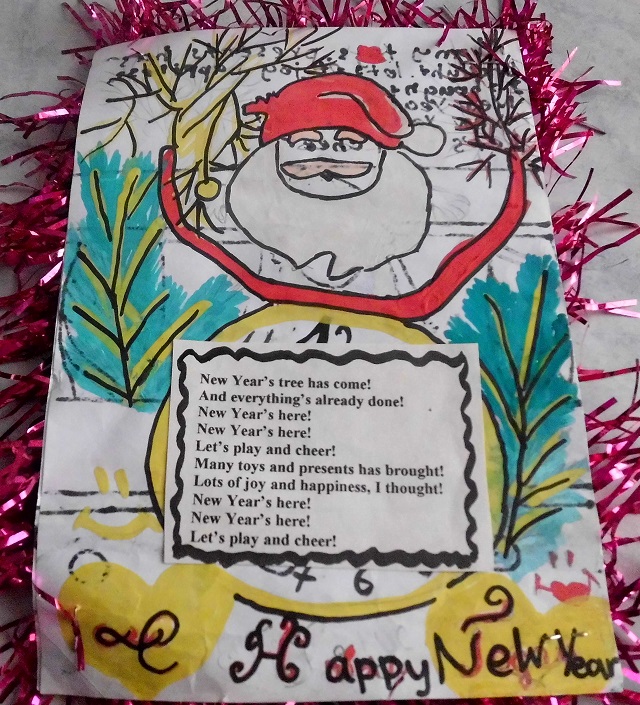 12
New Year's tree has come!
And everything's already done!
New Year's here!
New Year's here!
Let's play and cheer!
Many toys and presents has brought!
Lots of joy and happiness, I thought!
New Year's here!
New Year's here!
Let's play and cheer!
7 6
Happy New Year